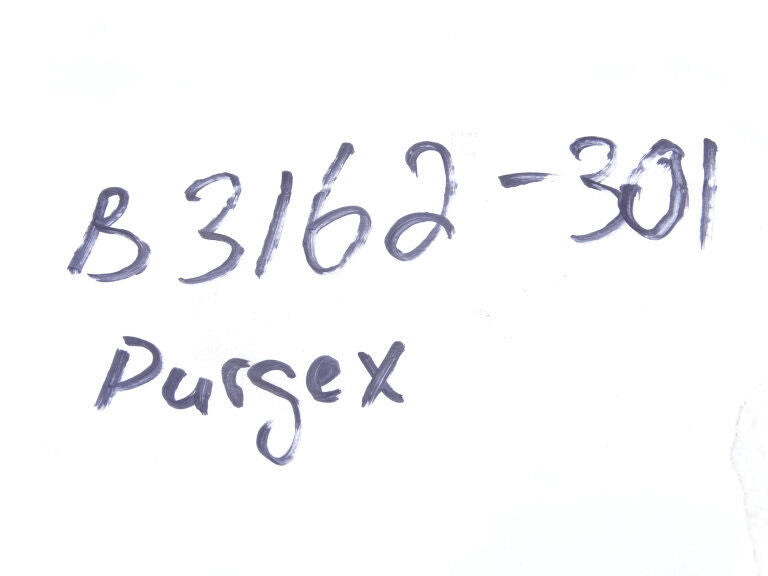 B3162-301
Purgex